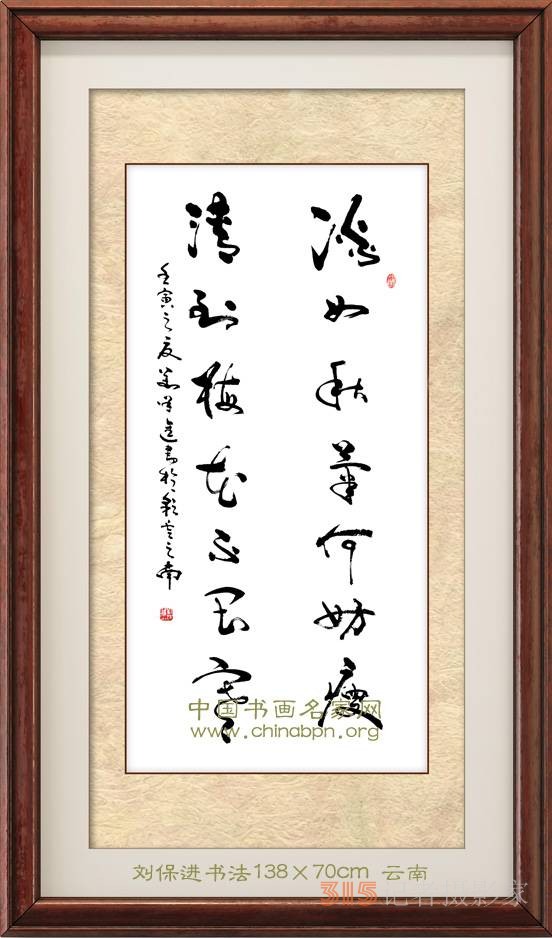 澹如秋菊何妨瘦
清到梅花不畏寒
壬寅之夏刘保进书于彩云之南
中国书画名家网
www.chinabpn.org
刘保进书法138×70cm 云南
315记者摄影家